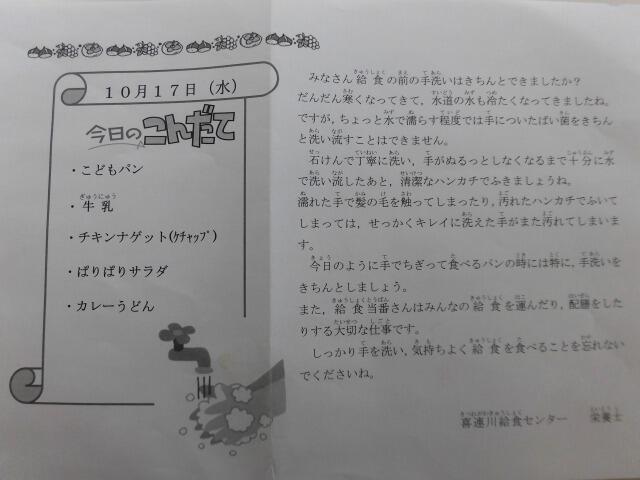 10月17日（水）
今日のこんだて
・こどもパン
・牛乳
・チキンナゲット(ｹﾁｬｯﾌﾟ)
・ぱりぱりサラダ
・カレーうどん
みなさん給食の前の手洗いはきちんとできましたか？
だんだん寒くなってきて，水道の水も冷たくなってきましたね。
ですが，ちょっと水で濡らす程度では手についたばい菌をきちん
と洗い流すことはできません。
石けんで丁寧に洗い，手がぬるっとしなくなるまで十分に水
で洗い流したあと，清潔なハンカチでふきましょうね。
濡れた手で髪の毛を触ってしまったり，汚れたハンカチでふいて
しまっては，せっかくキレイに洗えた手がまた汚れてしまいま
す。
今日のように手でちぎって食べるパンの時には特に，手洗いを
きちんとしましょう。
また，給食当番さんはみんなの給食を運んだり，配膳をした
りする大切な仕事です。
しっかり手を洗い，気持ちよく給食を食べることを忘れない
でくださいね。
喜連川給食センター　栄養士